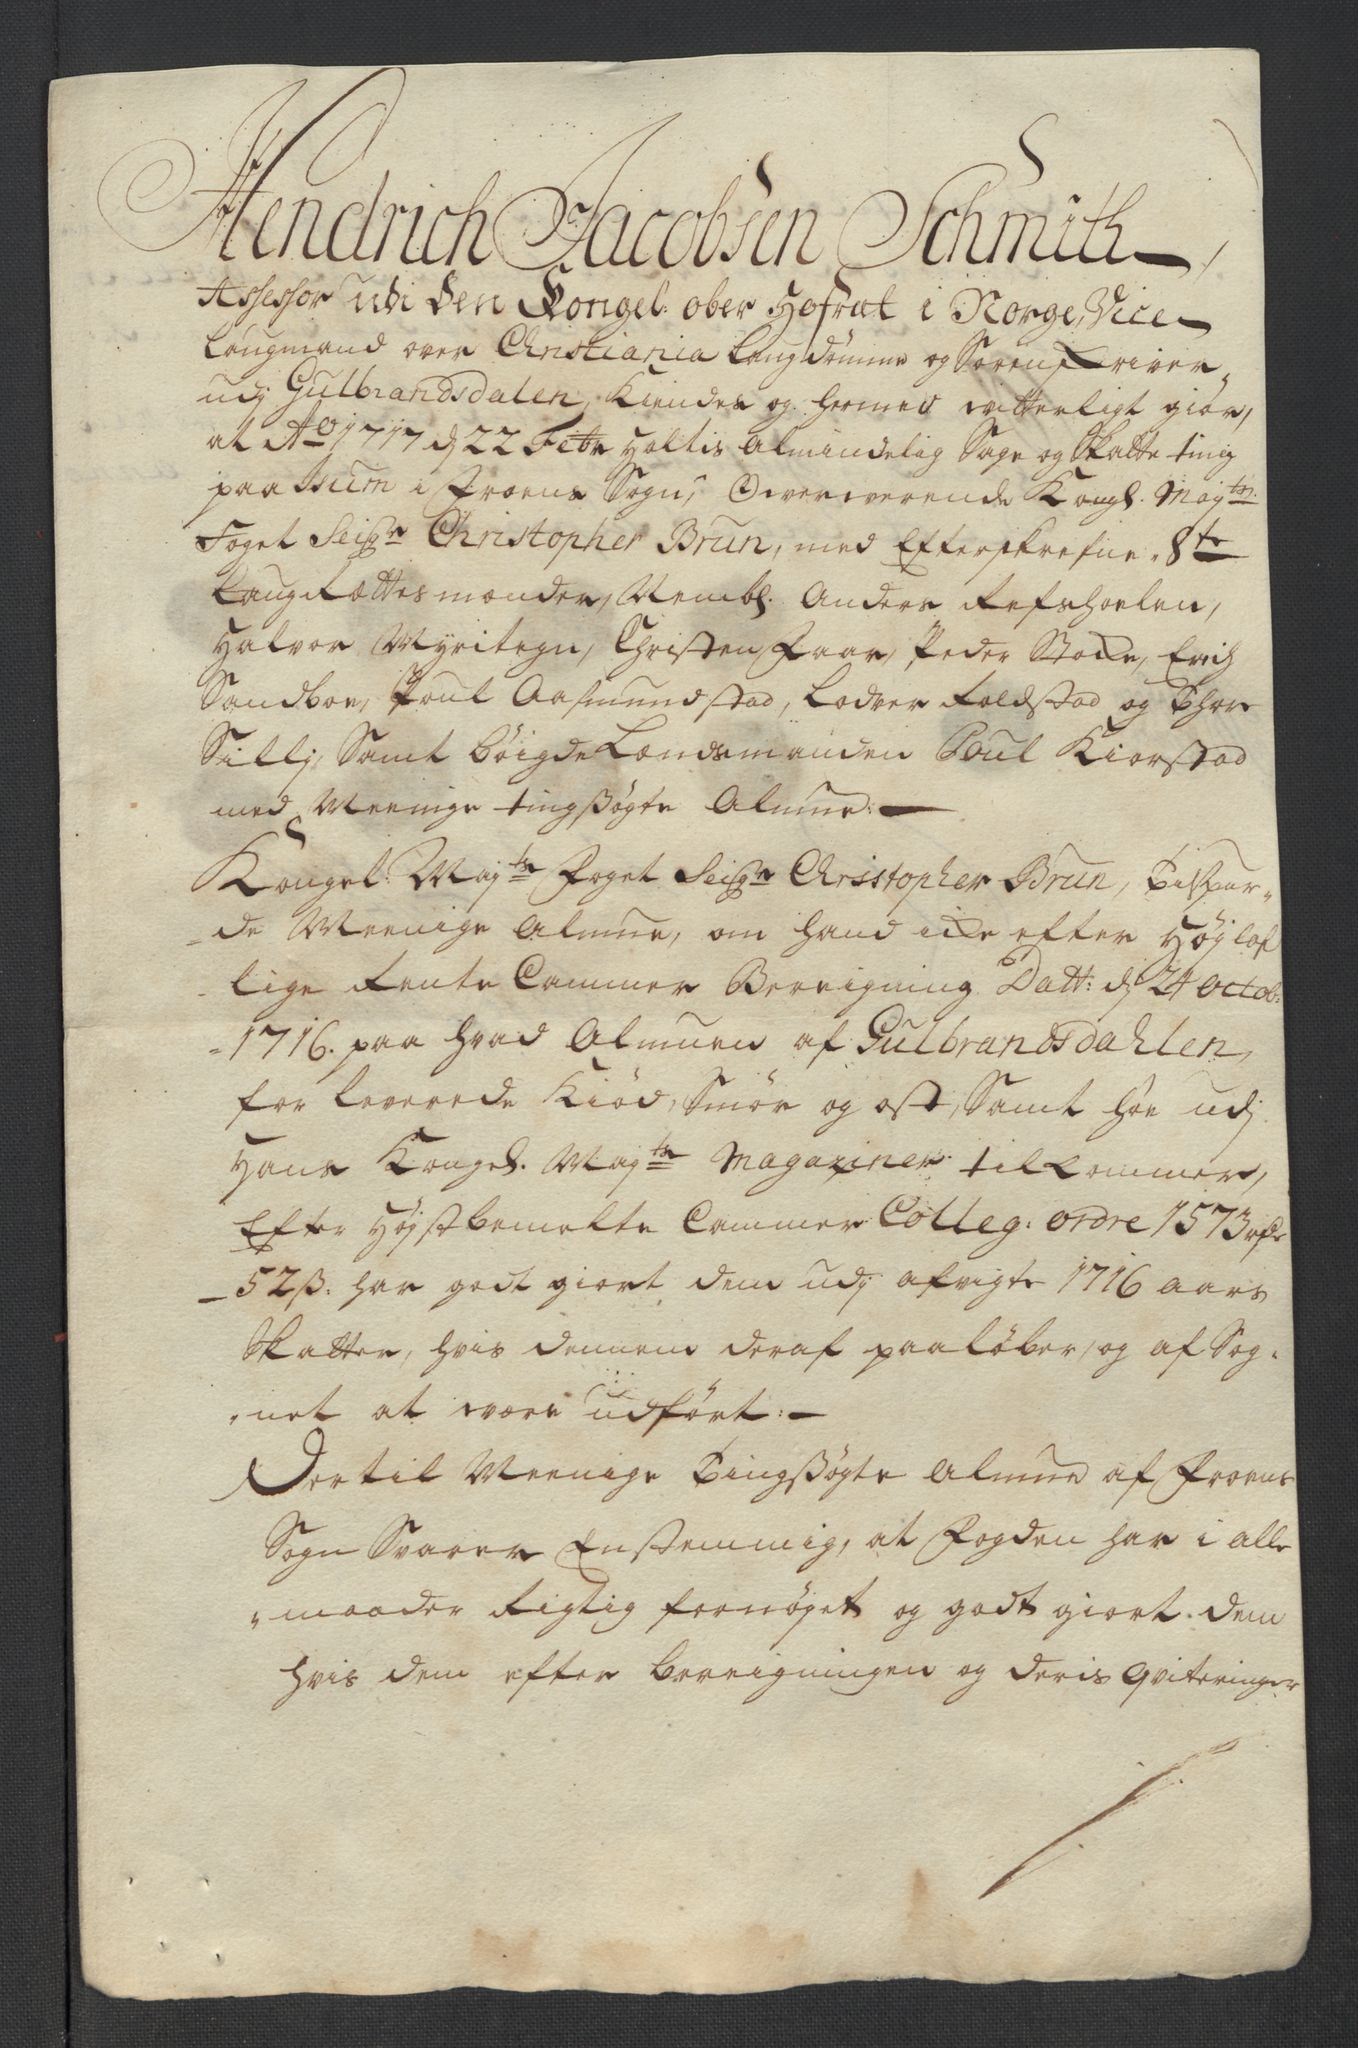 Hendrich Jacobsen Schmith
Assessor udi den Kongel: ober Hofræt i Norge, Vice
Laugmand over Christiania Laugdømme og Sorenskriver
udj Gulbrandsdalen, Kiendes og hermed vitterligt giør,
at Ao 1717 d 22 Febr Holtis Almindelig Sage og Skatte ting
paa Sum i Froens Sogn, Oververende Kongl. Mayts
Foget Seigr Christopher Brun, med Efterskrefne 8te
LaugRættes mænder, Nembl. Anders Refshoelen,
Halvor Myritegn, Christen Faar, Peder Stocke, Erich
Sandboe, Poul Aasmundstad, Lodver Foldstad og Thor
Sillj, Samt bøigde Lændsmanden Poul Kiorstad
med Meenige tingsøgte Almue:
Kongel: Mayts Foget Seigr Christopher Brun, tilspur-
de Meenige Almue, om hand icke efter Højlof
lige Rente Cammer Beregning Datt: d 24 Octob:
1716. paa hvad Almuen af Gulbrandsdahlen,
for leverede Kiød, Smør og ost, Samt høe udj
Hans Kongel. Mayts Magaziner tilkommer,
Efter Højstbemelte Cammer Colleg: ordre 1573 rdr
52 ß. har godt giort dem udj afvigte 1716 aars
Skatter, hvis dennem deraf paaløber, og af Sog-
net at være udført:
Dertil Meenige Tingsøgte Almue af Froens
Sogn Svarer Enstemmig, at Fogden har i alle
maader Rigtig fornøyet og godt giort dem
hvis dem efter beregningen og deris qviteringer